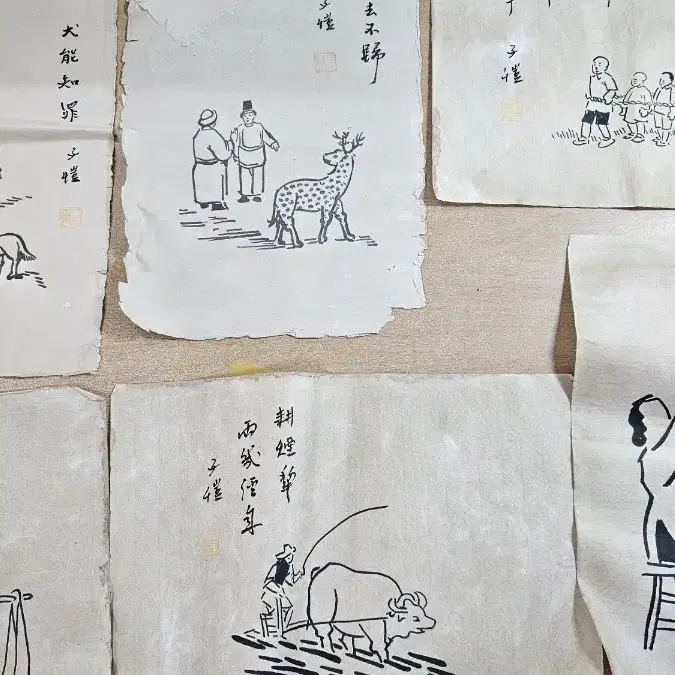 犬能知罪
子愷
去不歸
子愷
子愷
耕煙犂
雨幾經年
子愷